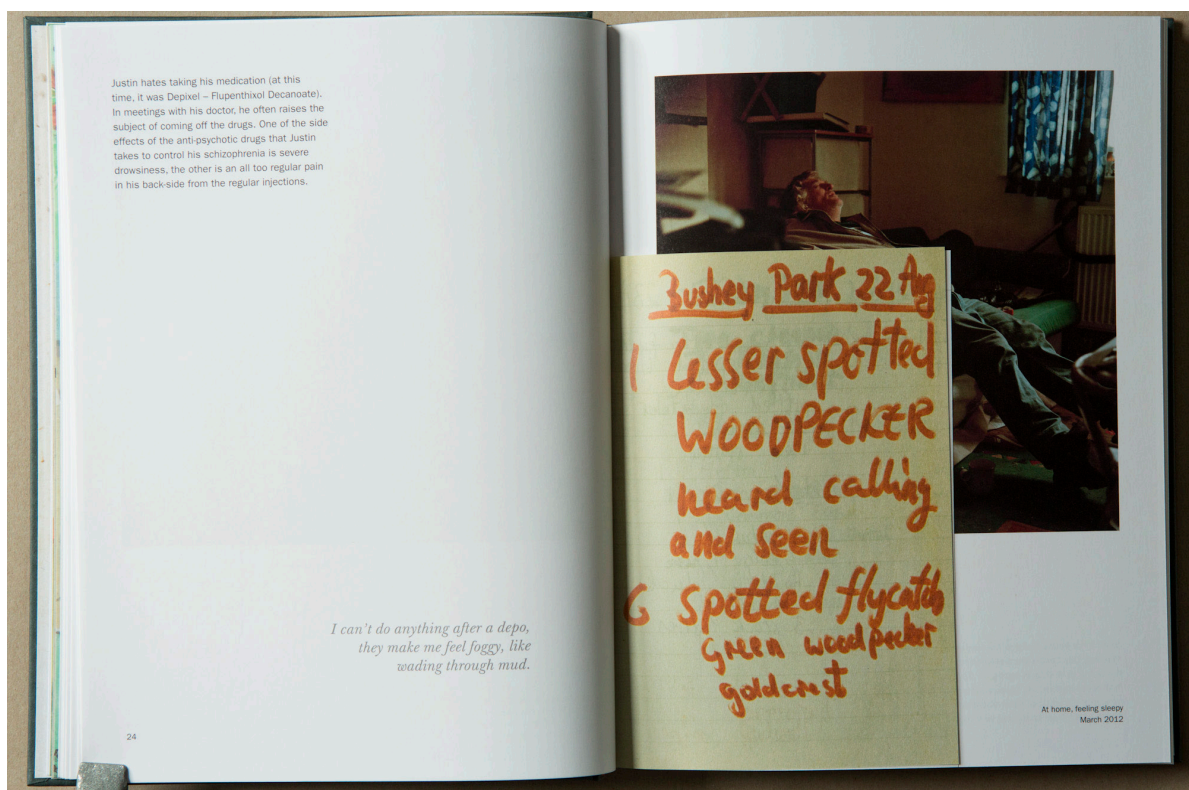 Justin hates taking his medication (at this
time, it was Depixel – Flupenthixol Decanoate).
In meetings with his doctor, he often raises the
subject of coming off the drugs. One of the side
effects of the anti-psychotic drugs that Justin
takes to control his schizophrenia is severe
drowsiness, the other is an all too regular pain
in his back-side from the regular injections.
I can't do anything after a depo,
they make me feel foggy, like
wading through mud.
24
Bushey Park 22 Aug
1 Lesser spotted
WOODPECKER
heard calling
and seen
6 spotted flycatch
green woodpecker
goldcrest
At home, feeling sleepy
March 2012